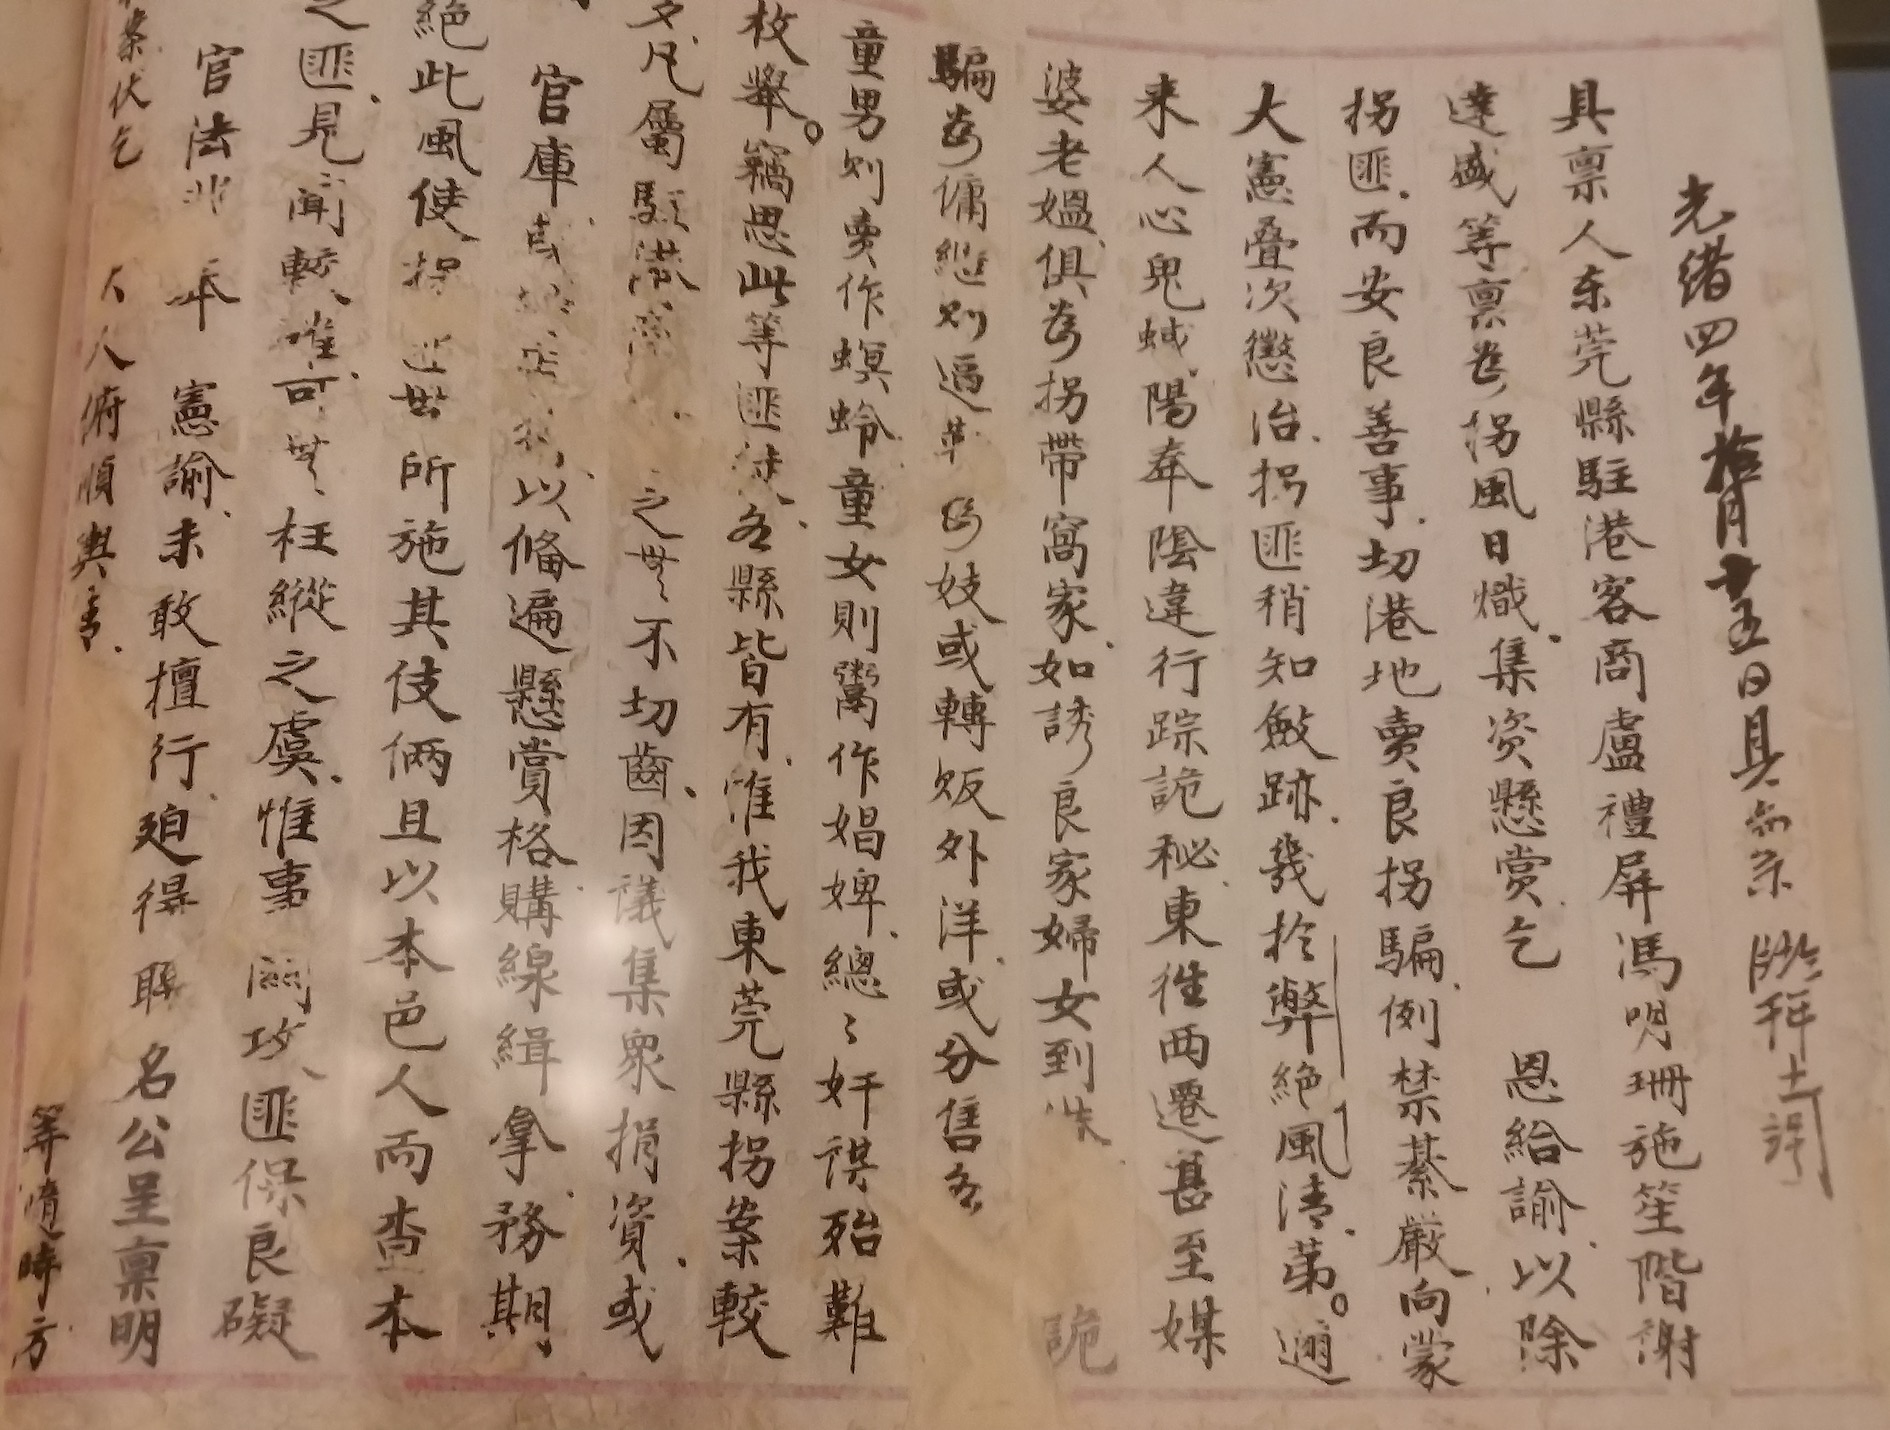 光緒四年拾月十五日具
具禀人东莞縣駐港客商盧禮屏馮明珊施笙階謝
達盛等禀為拐風日熾集资懸赏乞 恩給諭以除
拐匪而安良善事切港地賣良拐騙例禁綦嚴向蒙
大憲叠次懲治拐匪稍知敛跡幾於弊絕風清第邇
来人心鬼蜮陽奉陰違行踪詭秘東徃西遷甚至媒
婆老媼俱為拐帶窩家如誘良家婦女到 詭
騙為傭繼则逼 妓或轉販外洋或分售各
童男则賣作螟蛉童女則鬻作娼婢總之奸謀殆難
枚舉竊思此等匪徒各縣皆有惟我東莞縣拐案較
多凡屬 之世不切齒因議集眾捐資或
官庫 以俻遍懸賞格購線緝拿務期
絕此風使拐 所施其伎俩且以本邑人而查本
之匪見聞較確可無枉縱之虞惟事關攻匪保良礙
官法 奉 憲諭未敢擅行廹得聯名公呈禀明
案伏乞 大人俯順輿 等隨時方